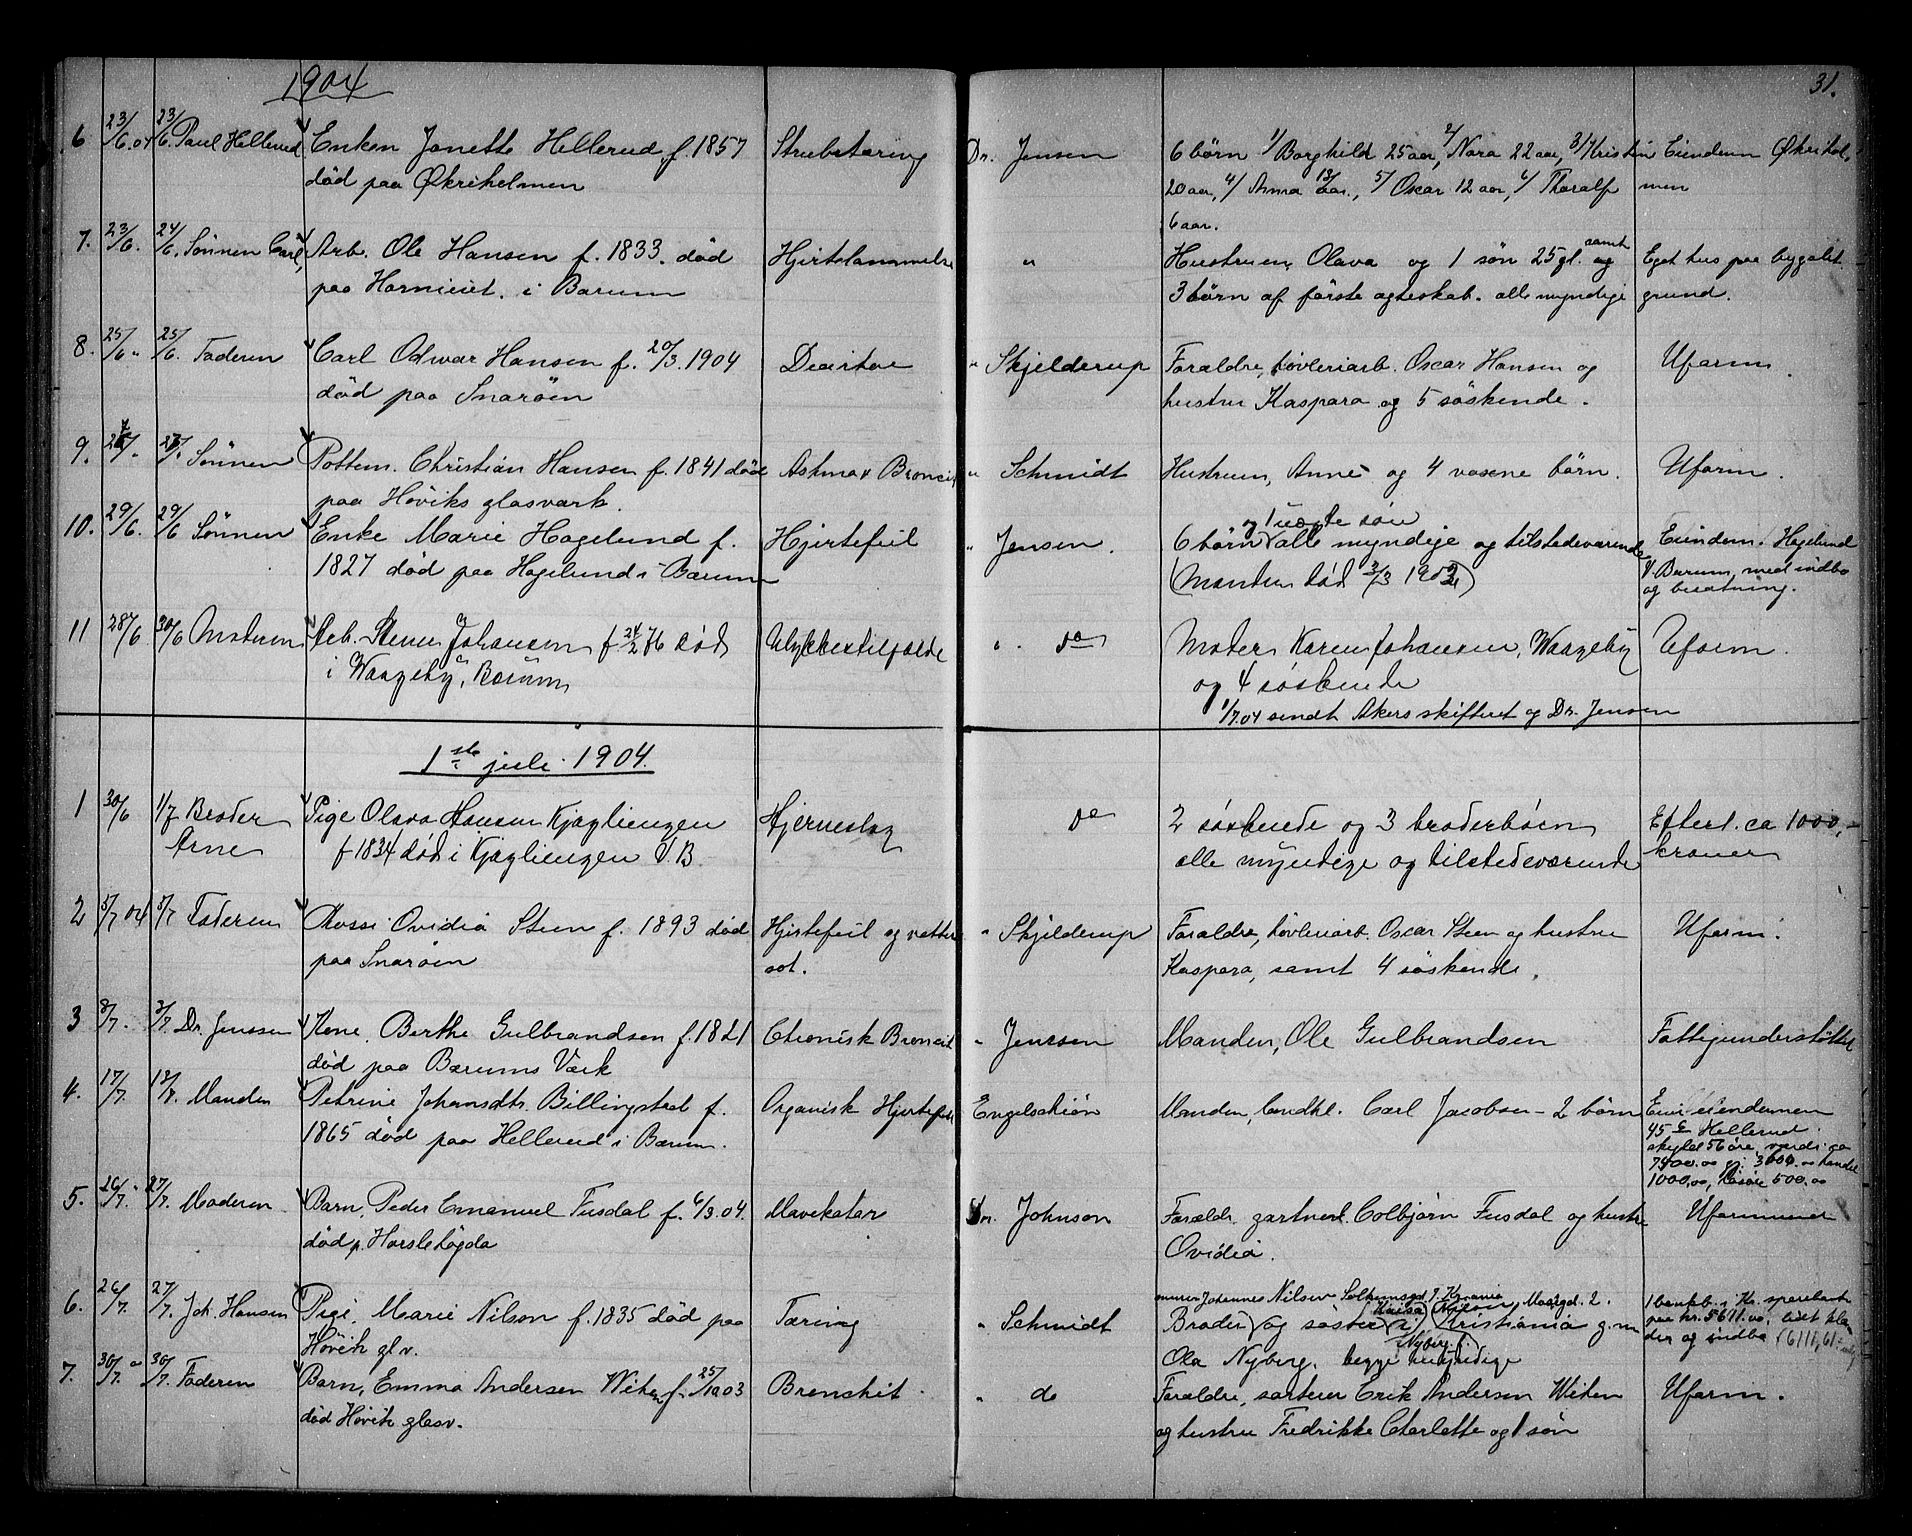 1904
31.
6 23/6.04 23/6. Paul Hellerud Enken Janette Hellerud f. 1857 Strubetæring Dr. Jensen 6 børn 1/ Borghild 25 aar, 2/ Nora 22 aar, 3/ Kristin Eiendom Økrihol-
død paa Økriholmen 20 aar, 4/ Anna 13 aar., 5/ Oscar 12 aar, 6/ Tharalf men
6 aar.
7. 23/6. 24/6. Sønnen Carl, Arb. Ole Hansen f. 1833. død Hjertelammelse " Hustruen, Olava og 1 søn 25 gl. samt og Eget hus paa bygslet
paa i Bærum 3 børn af første ægteskab. alle myndige grund.
8. 25/6 " 25/6. Faderen Carl Odvar Hansen f. 20/3. 1904 Deairhoe " Skjelderup Forældre, høvleriarb. Oscar Hansen og Uform.
død paa Snarøen hustru Kaspara og 5 søskende.
9. Sønnen Pottem. Christian Hansen f. 1841 død Astma & Broncit " Schmidt Hustruen, Anne og 4 voxne børn. Uform.
paa Høviks glasværk.
og 1 uægte søn
10. 29/6. 29/6 Sønnen Enke Marie Hagelund f. Hjertefeil " Jensen. 6 børn alle myndige og tilstedeværende Eiendom. Hagelund
1827 død paa Hagelund i Bærum (Manden død 3/3 1902) V. Bærum, med indbo
og besætning.
11 28/6 30/6 Moderen Arb. Stener Johansen f. 24/2 76 død Ulykkestilfælde " do Moder Karen Johansen, Waageby Uform.
i Waageby, Bærum og 4 søskende
1/7.04 sendt Akers skifteret og Dr. Jensen
1ste juli 1904.
1 30/6 1/7 Broder Pige Olava Hansen Kjagliengen Hjerneslag do 2 søskende og 3 broderbørn Efterl. ca 1000,-
Arne f 1834 død i Kjagliengen V. B. alle myndige og tilstedeværende kroner
2 5/7 04 5/7 Faderen Rossi Ovidia Steen f. 1893 død Hjertefeil og vatter " Skjelderup Forældre, høvleriarb. Oscar Steen og hustru Uform.
paa Snarøen sot. Kaspara, samt 4 søskende.
3 8/7. Dr. Jenssen Kone. Berthe Gulbrandsen f. 1821 Chronisk Broncit " Jenssen Manden, Ole Gulbrandsen Fattigunderstøttet
død paa Bærums Værk
4. 17/7. 18/7. Manden Petrine Johansdtr. Billingstad f. Organisk Hjertefeil Engelschiøn Manden, landhl. Carl Jacobsen - 2 børn Eier eiendommen
1865 død paa Hellerud i Bærum. 45 Hellerud
skyld 56 øre, værdi ca
7400.00 gj. 3000.00 handel
1000.00, løsøre 500.00
5. 26/7. 27/7. Moderen Barn, Peder Emanuel Fusdal f. 6/3.04. Mavekatar Dr. Johnson Forældr. gartnerl. Colbjørn Fusdal og hustru Uformuend
død p. Horslehøgda Ovidia.
murer Johannes Nilsen
6. 26/7. 27/7. Joh. Hansen Pige, Marie Nilson f. 1835 død paa Tæring " Schmidt Broder og søster i Kristiania g. m. 1 bankb. i Kr. sparebank
Høvik gl.v. Ola Nyberg. begge myndige paa kr. 5611.00, lidt klæ
der og indbo (6111,61
7. 30/7. " 30/7. Faderen Barn, Emma Andersen Witen f. 25/ 1903 Bronchit " do Forældre, sorterer Erik Andersen Witen Uform.
død Høvik glasv. og hustru Fredrikke Charlotte og 1 søn